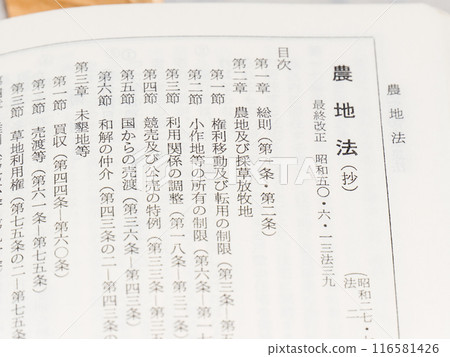 農地法
農地法(抄)
(昭和二七・
法二
最終改正 昭和五〇・六・一三法三九
目次
第一章 総則(第一条・第二条)
第二章 農地及び採草放牧地
第一節 権利移動及び転用の制限(第三条―第五
第二節 小作地等の所有の制限(第六条―第一七
第三節 利用関係の調整(第一八条―第三二
第四節 競売及び公売の特例(第三三条―第三
第五節 国からの売渡(第三六条―第四三条
第六節 和解の仲介(第四三条の二―第四三条
第三章 未墾地等
第一節 買収(第四四条―第六〇条)
第二節 売渡等(第六一条―第七五条)
第三節 草地利用権(第七五条の二―第七五
PIXTA
116581426